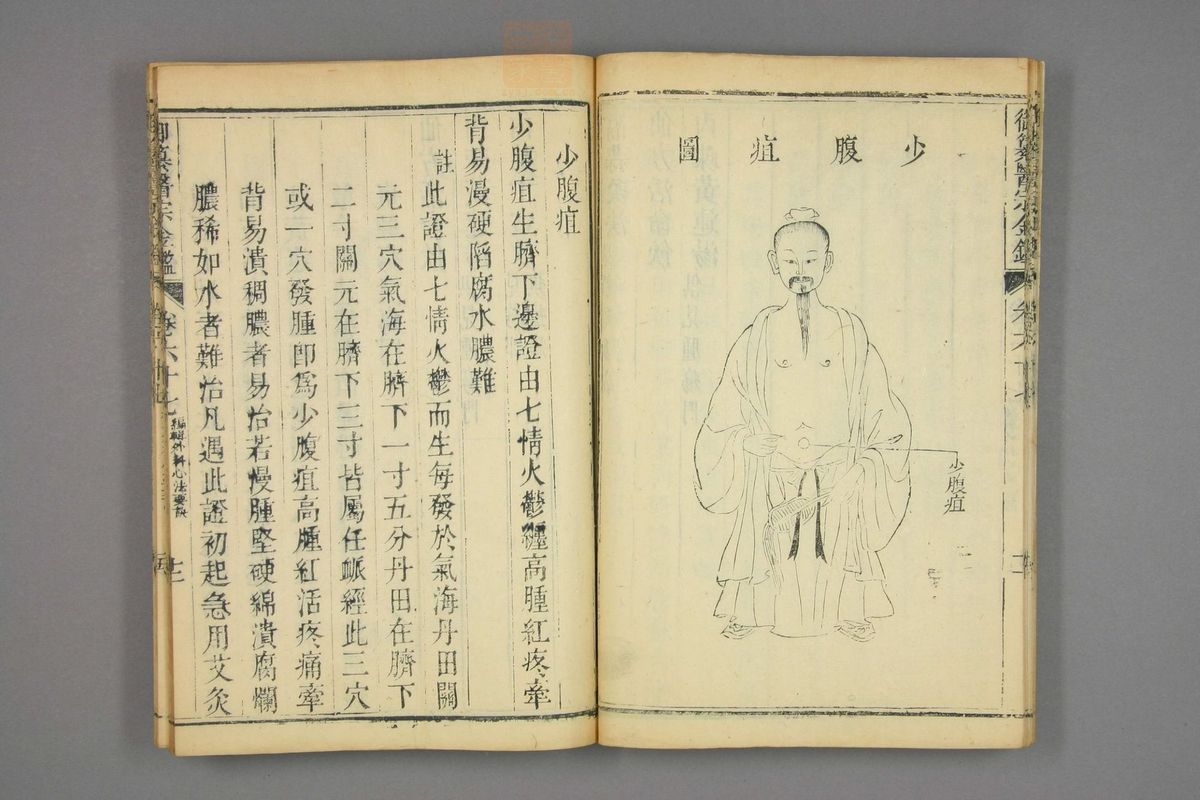 少腹疽圖
少腹疽
少腹疽
少腹疽生臍下邊證由七情火鬱纏高腫紅疼牽
背易漫硬陷腐水膿難
註此證由七情火鬱而生每發於氣海丹田關
元三穴氣海在臍下一寸五分丹田在臍下
二寸關元在臍下三寸皆屬任脈經此三穴
或一穴發腫卽爲少腹疽高腫紅活疼痛牽
背易潰稠膿者易治若漫腫堅硬綿潰腐爛
膿稀如水者難治凡遇此證初起急用艾灸
御纂醫宗金鑑
卷六十七
編輯外科心法要訣